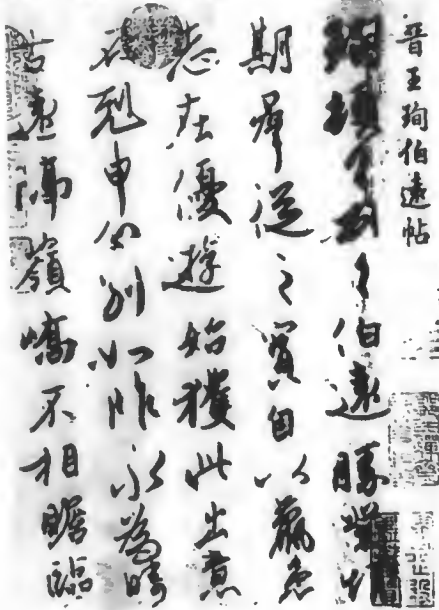 晋王珣伯遠帖
伯遠勝業情
期群從之寶自以羸患
志在優遊始獲此出意
不剋申分別如昨永為疇
古遠隔嶺嶠不相瞻臨